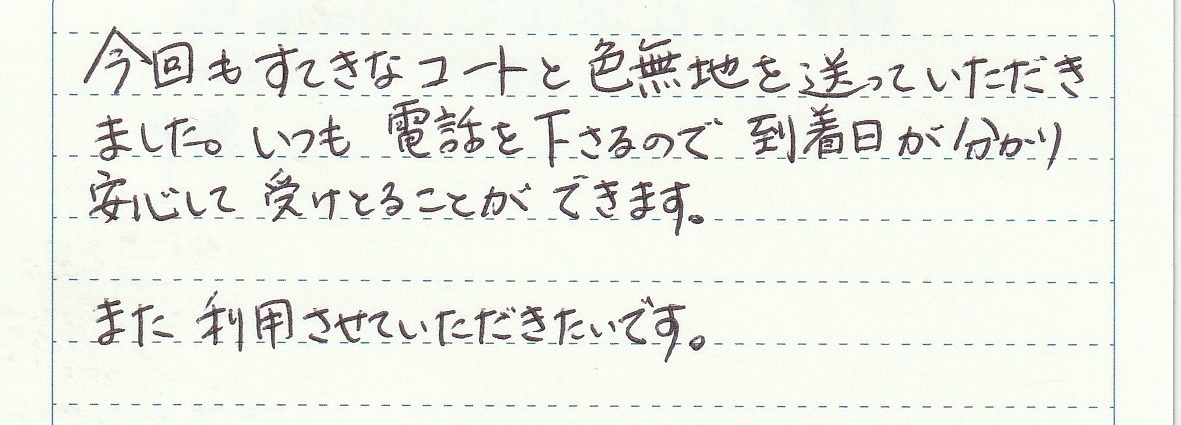 今回もすてきなコートと色無地を送っていただき
ました。いつも電話を下さるので到着日が分かり
安心して受けとることができます。
また利用させていただきたいです。